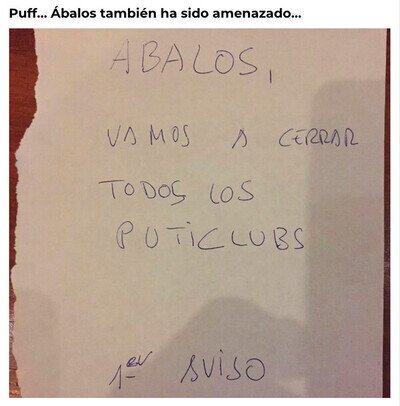 Puff... Ábalos también ha sido amenazado...
ABALOS,
VAMOS A CERRAR
TODOS LOS
PUTICLUBS
1er AVISO